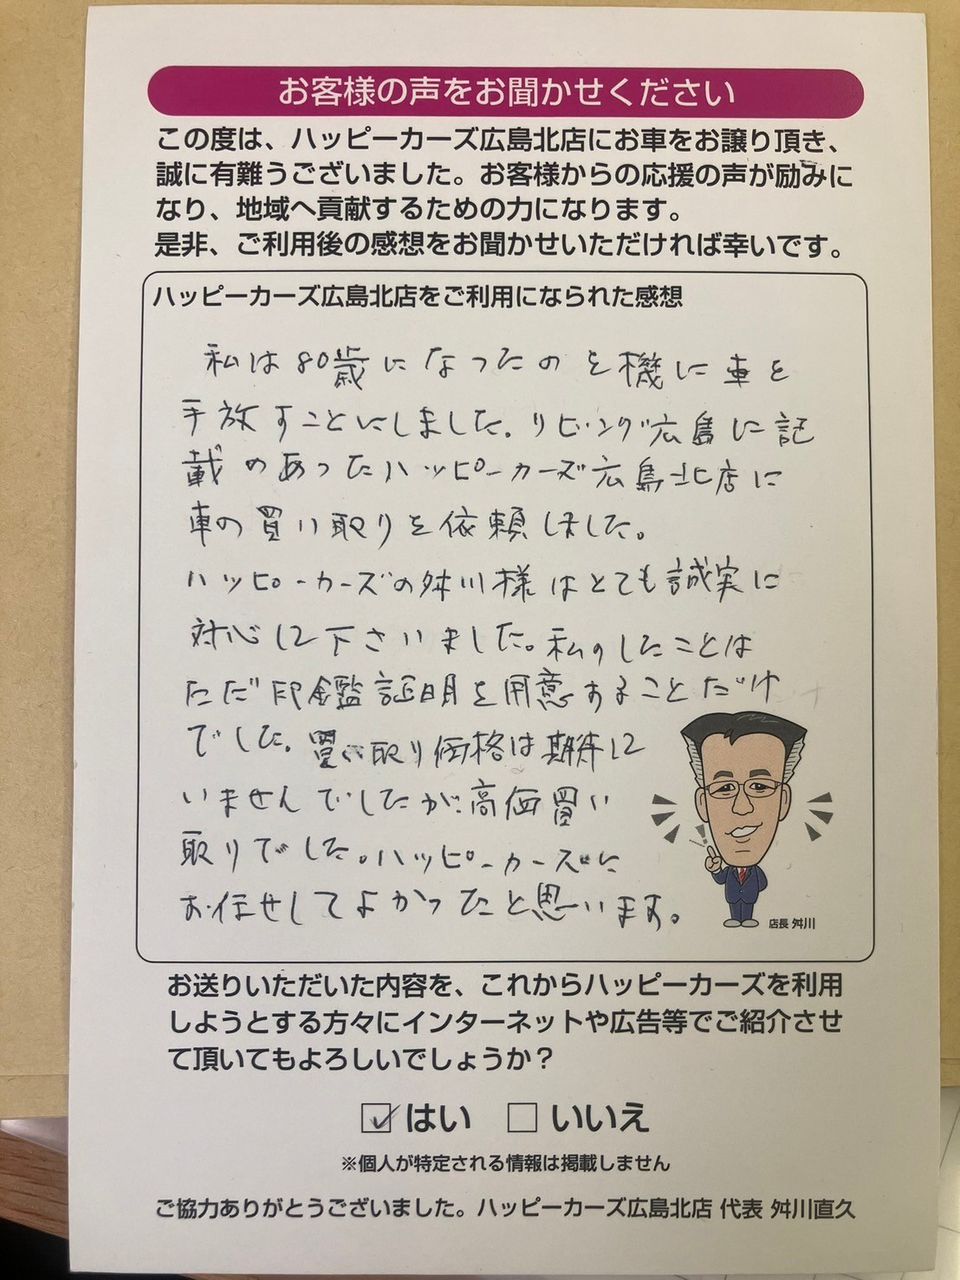 お客様の声をお聞かせください
この度は、ハッピーカーズ広島北店にお車をお譲り頂き、
誠に有難うございました。お客様からの応援の声が励みに
なり、地域へ貢献するための力になります。
是非、ご利用後の感想をお聞かせいただければ幸いです。
ハッピーカーズ広島北店をご利用になられた感想
私は80歳になったのを機に車を
手放すことにしました。リビング広島に記
載のあったハッピーカーズ広島北店に
車の買い取りを依頼しました。
ハッピーカーズの舛川様はとても誠実に
対応して下さいました。私のしたことは
ただ印鑑証明を用意することだけ
でした。買い取り価格は期待して
いませんでしたが高価買い
取りでした。ハッピーカーズに
お任せしてよかったと思います。
店長 舛川
お送りいただいた内容を、これからハッピーカーズを利用
しようとする方々にインターネットや広告等でご紹介させ
て頂いてもよろしいでしょうか？
はい いいえ
※個人が特定される情報は掲載しません
ご協力ありがとうございました。ハッピーカーズ広島北店 代表 舛川直久